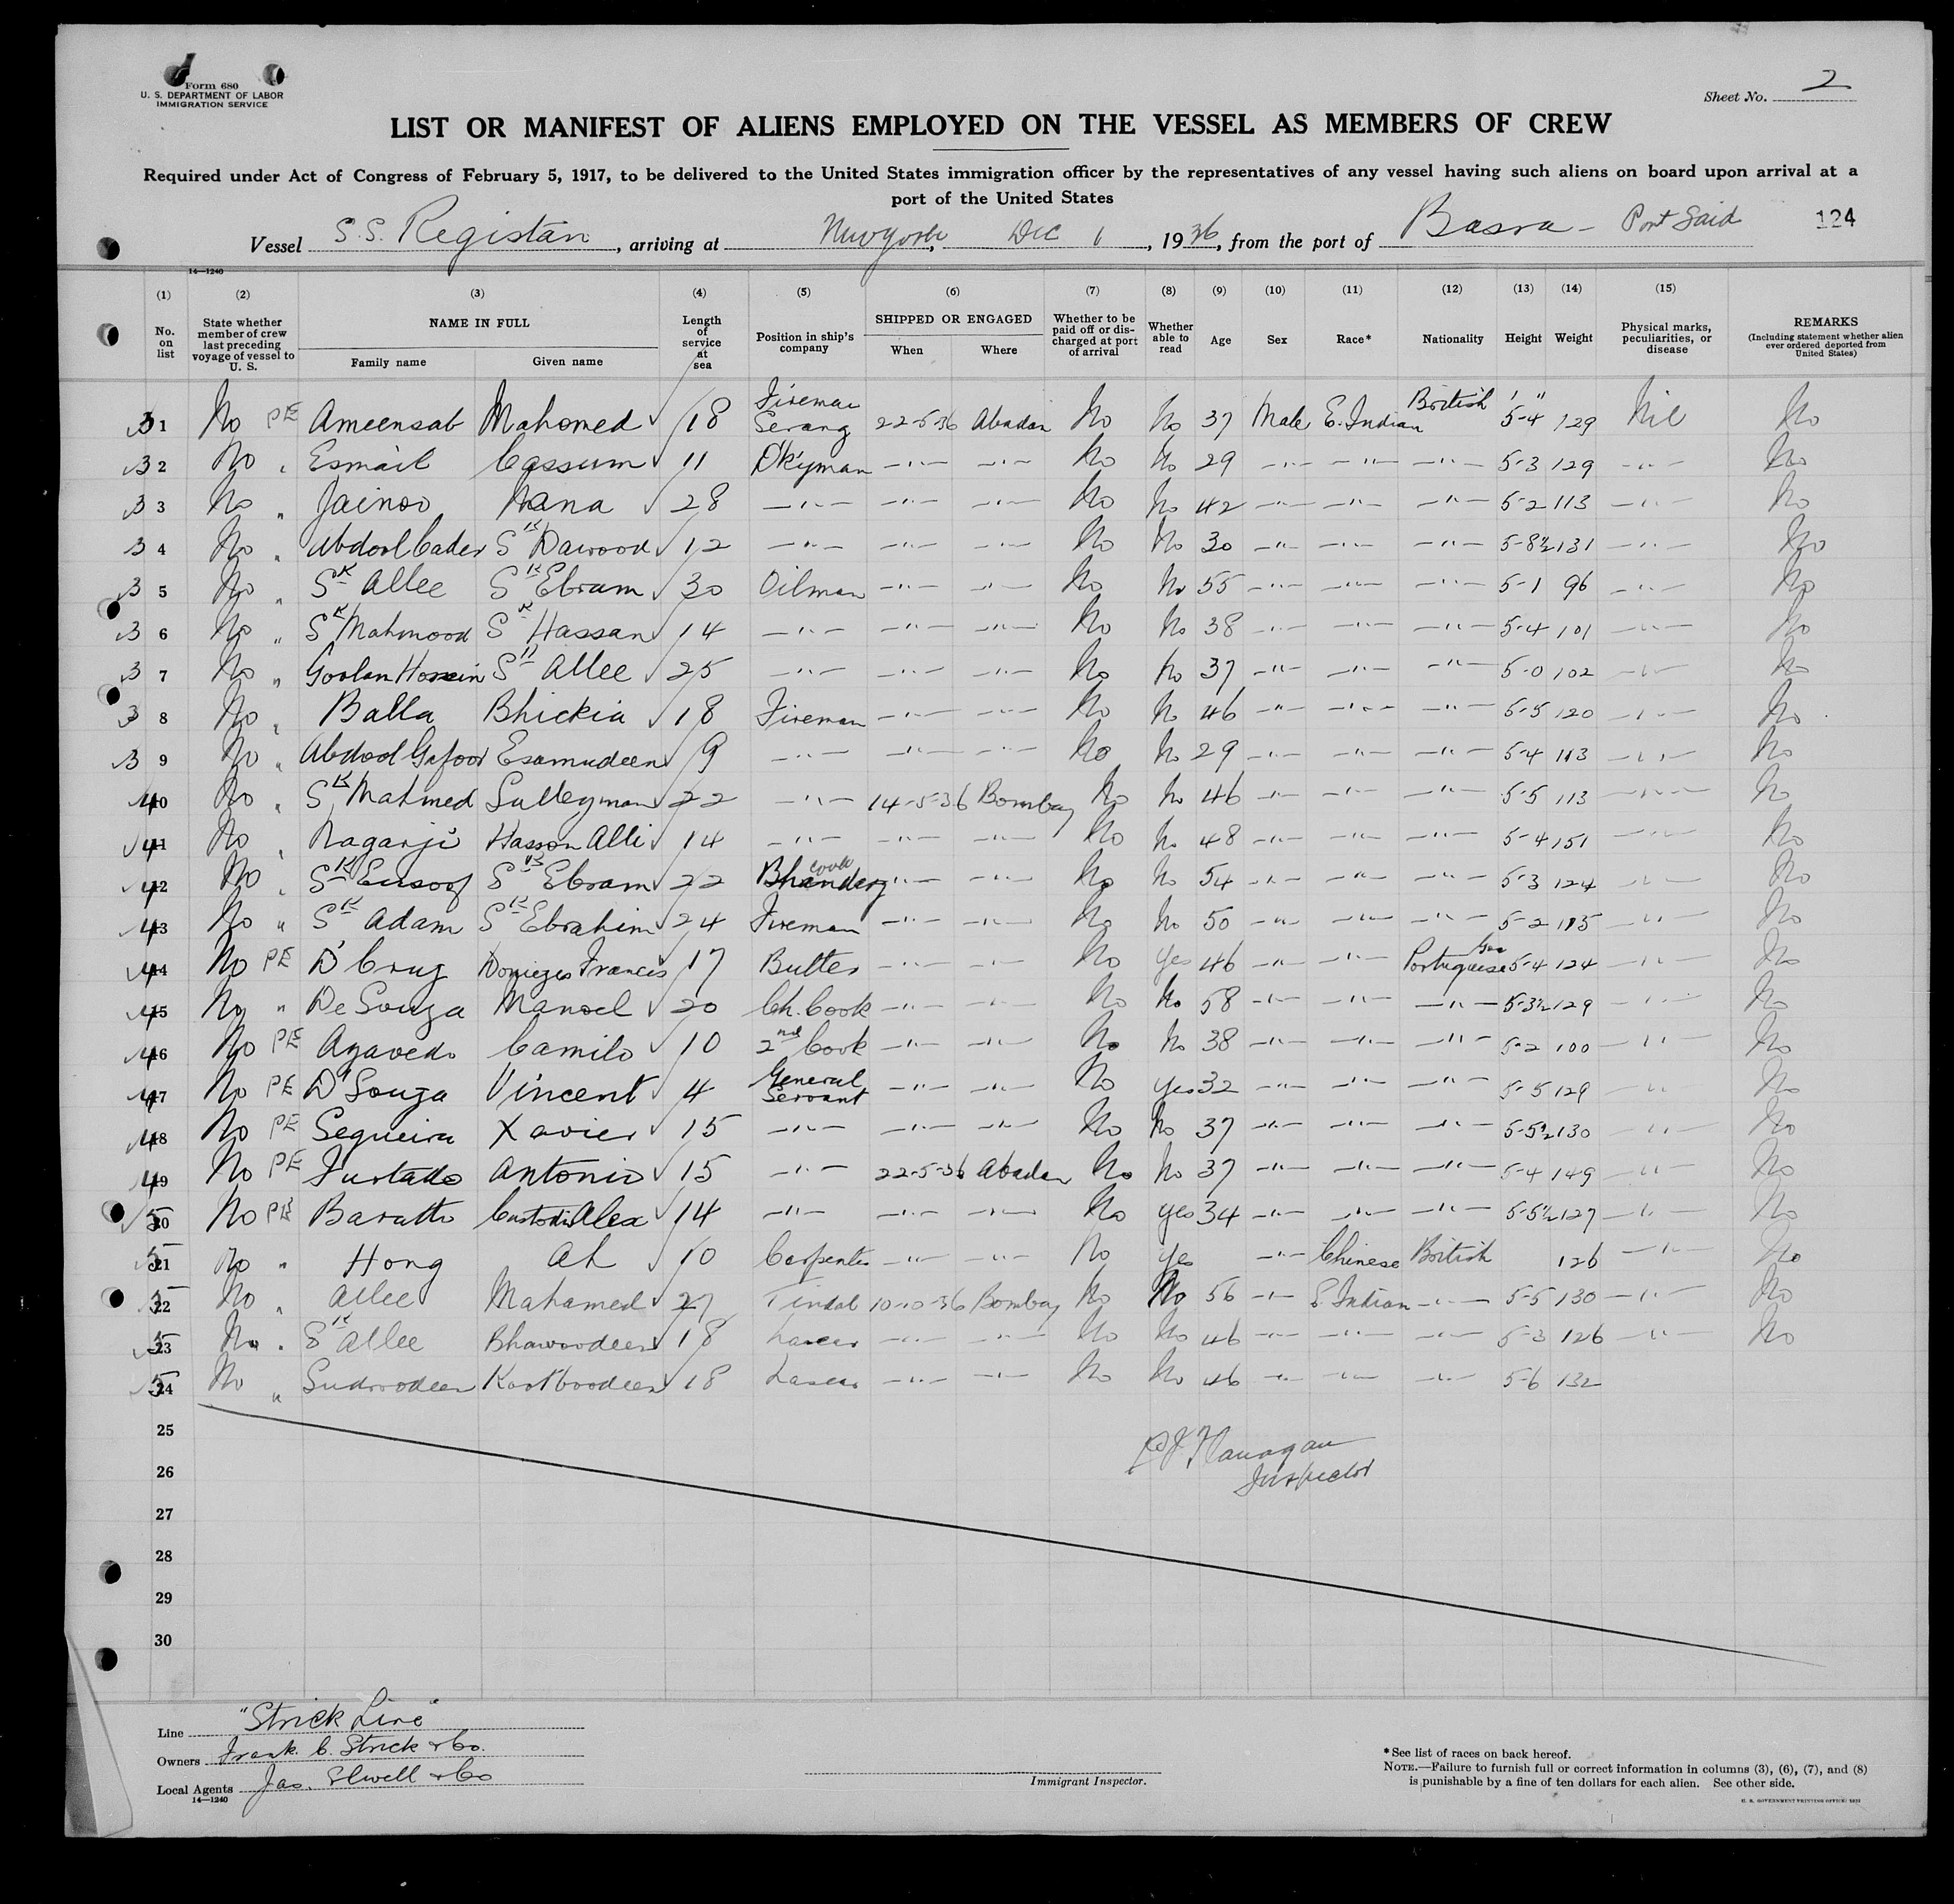 Form 680
U. S. DEPARTMENT OF LABOR
IMMIGRATION SERVICE
Sheet No. 2
LIST OR MANIFEST OF ALIENS EMPLOYED ON THE VESSEL AS MEMBERS OF CREW
Required under Act of Congress of February 5, 1917, to be delivered to the United States immigration officer by the representatives of any vessel having such aliens on board upon arrival at a
port of the United States
Vessel S.S. Registan, arriving at Newyork, Dec 1, 1936, from the port of Basra - Port Said 124
14—1240
(1) (2) (3) (4) (5) (6) (7) (8) (9) (10) (11) (12) (13) (14) (15)
No. on list State whether member of crew last preceding voyage of vessel to U. S. NAME IN FULL Family name Given name Length of service at sea Position in ship's company SHIPPED OR ENGAGED When Where Whether to be paid off or discharged at port of arrival Whether able to read Age Sex Race* Nationality Height Weight Physical marks, peculiarities, or disease REMARKS (Including statement whether alien ever ordered deported from United States)
31 No PE Ameensab Mahomed 18 Fireman Serang 22-5-36 Abadan No No 37 Male E. Indian British 5'-4" 129 Nil No
32 No " Esmail Cassum 11 D'kyman -"- -"- No No 29 -"- -"- -"- 5-3 129 -"- No
33 No " Jainoo Nana 28 -"- -"- -"- No No 42 -"- -"- -"- 5-2 113 -"- No
34 No " Abdool Cader Sk Dawood 12 -"- -"- -"- No No 30 -"- -"- -"- 5-8½ 131 -"- No
35 No " Sk Allee Sk Ebram 30 Oilman -"- -"- No No 55 -"- -"- -"- 5-1 96 -"- No
36 No " Sk Mahmood Sk Hassan 14 -"- -"- -"- No No 38 -"- -"- -"- 5-4 101 -"- No
37 No " Goolan Hossein Sk Allee 25 -"- -"- -"- No No 37 -"- -"- -"- 5-0 102 -"- No
38 No " Balla Bhickia 18 Fireman -"- -"- No No 46 -"- -"- -"- 5-5 120 -"- No
39 No " Abdool Gafoor Esamudeen 9 -"- -"- -"- No No 29 -"- -"- -"- 5-4 113 -"- No
40 No " Sk Mahmed Sulleyman 22 -"- 14-5-36 Bombay No No 46 -"- -"- -"- 5-5 113 -"- No
41 No " Nagarji Hasson Alli 14 -"- -"- -"- No No 48 -"- -"- -"- 5-4 151 -"- No
42 No " Sk Eusoof Sk Ebram 22 Bhandary cook -"- -"- No No 54 -"- -"- -"- 5-3 124 -"- No
43 No " Sk Adam Sk Ebrahim 24 Fireman -"- -"- No No 50 -"- -"- -"- 5-2 -"- No
44 No PE D'Cruz Francis 17 Butler -"- -"- No Yes 46 -"- -"- Portuguese Goa 5-4 124 -"- No
45 No " De Souza Manoel 20 Ch. Cook -"- -"- No No 58 -"- -"- -"- 5-3½ 129 -"- No
46 No PE Azavedo Camilo 10 2nd Cook -"- -"- No No 38 -"- -"- -"- 5-2 100 -"- No
47 No PE D'Souza Vincent 4 General Servant -"- -"- No yes 32 -"- -"- -"- 5-5 129 -"- No
48 No PE Sequeira Xavier 15 -"- -"- -"- No No 37 -"- -"- -"- 5-5½ 130 -"- No
49 No PE Furtado Antonio 15 -"- 22-5-36 Abadan No No 37 -"- -"- -"- 5-4 149 -"- No
50 No PE Baratto Custodio Alex 14 -"- -"- -"- No yes 34 -"- -"- -"- 5-5½ 127 -"- No
51 No " Hong Ah 10 Carpenter -"- -"- No yes -"- Chinese British 126 -"- No
52 No " Allee Mahamed 27 Tindal 10-10-36 Bombay No No 56 -"- E. Indian -"- 5-5 130 -"- No
53 No " Sk Allee Bhawoodeen 18 Lascar -"- -"- No No 46 -"- -"- -"- 5-3 126 -"- No
54 No " Sudroodeen Kootboodeen 18 Lascar -"- -"- No No 46 -"- -"- -"- 5-6 132
25
26
27
28
29
30
Flanagan
Inspector
Line "Strick Line"
Owners Frank. C. Strick & Co.
Local Agents Jas. Elwell & Co
14—1240
Immigrant Inspector.
*See list of races on back hereof.
NOTE.—Failure to furnish full or correct information in columns (3), (6), (7), and (8)
is punishable by a fine of ten dollars for each alien. See other side.